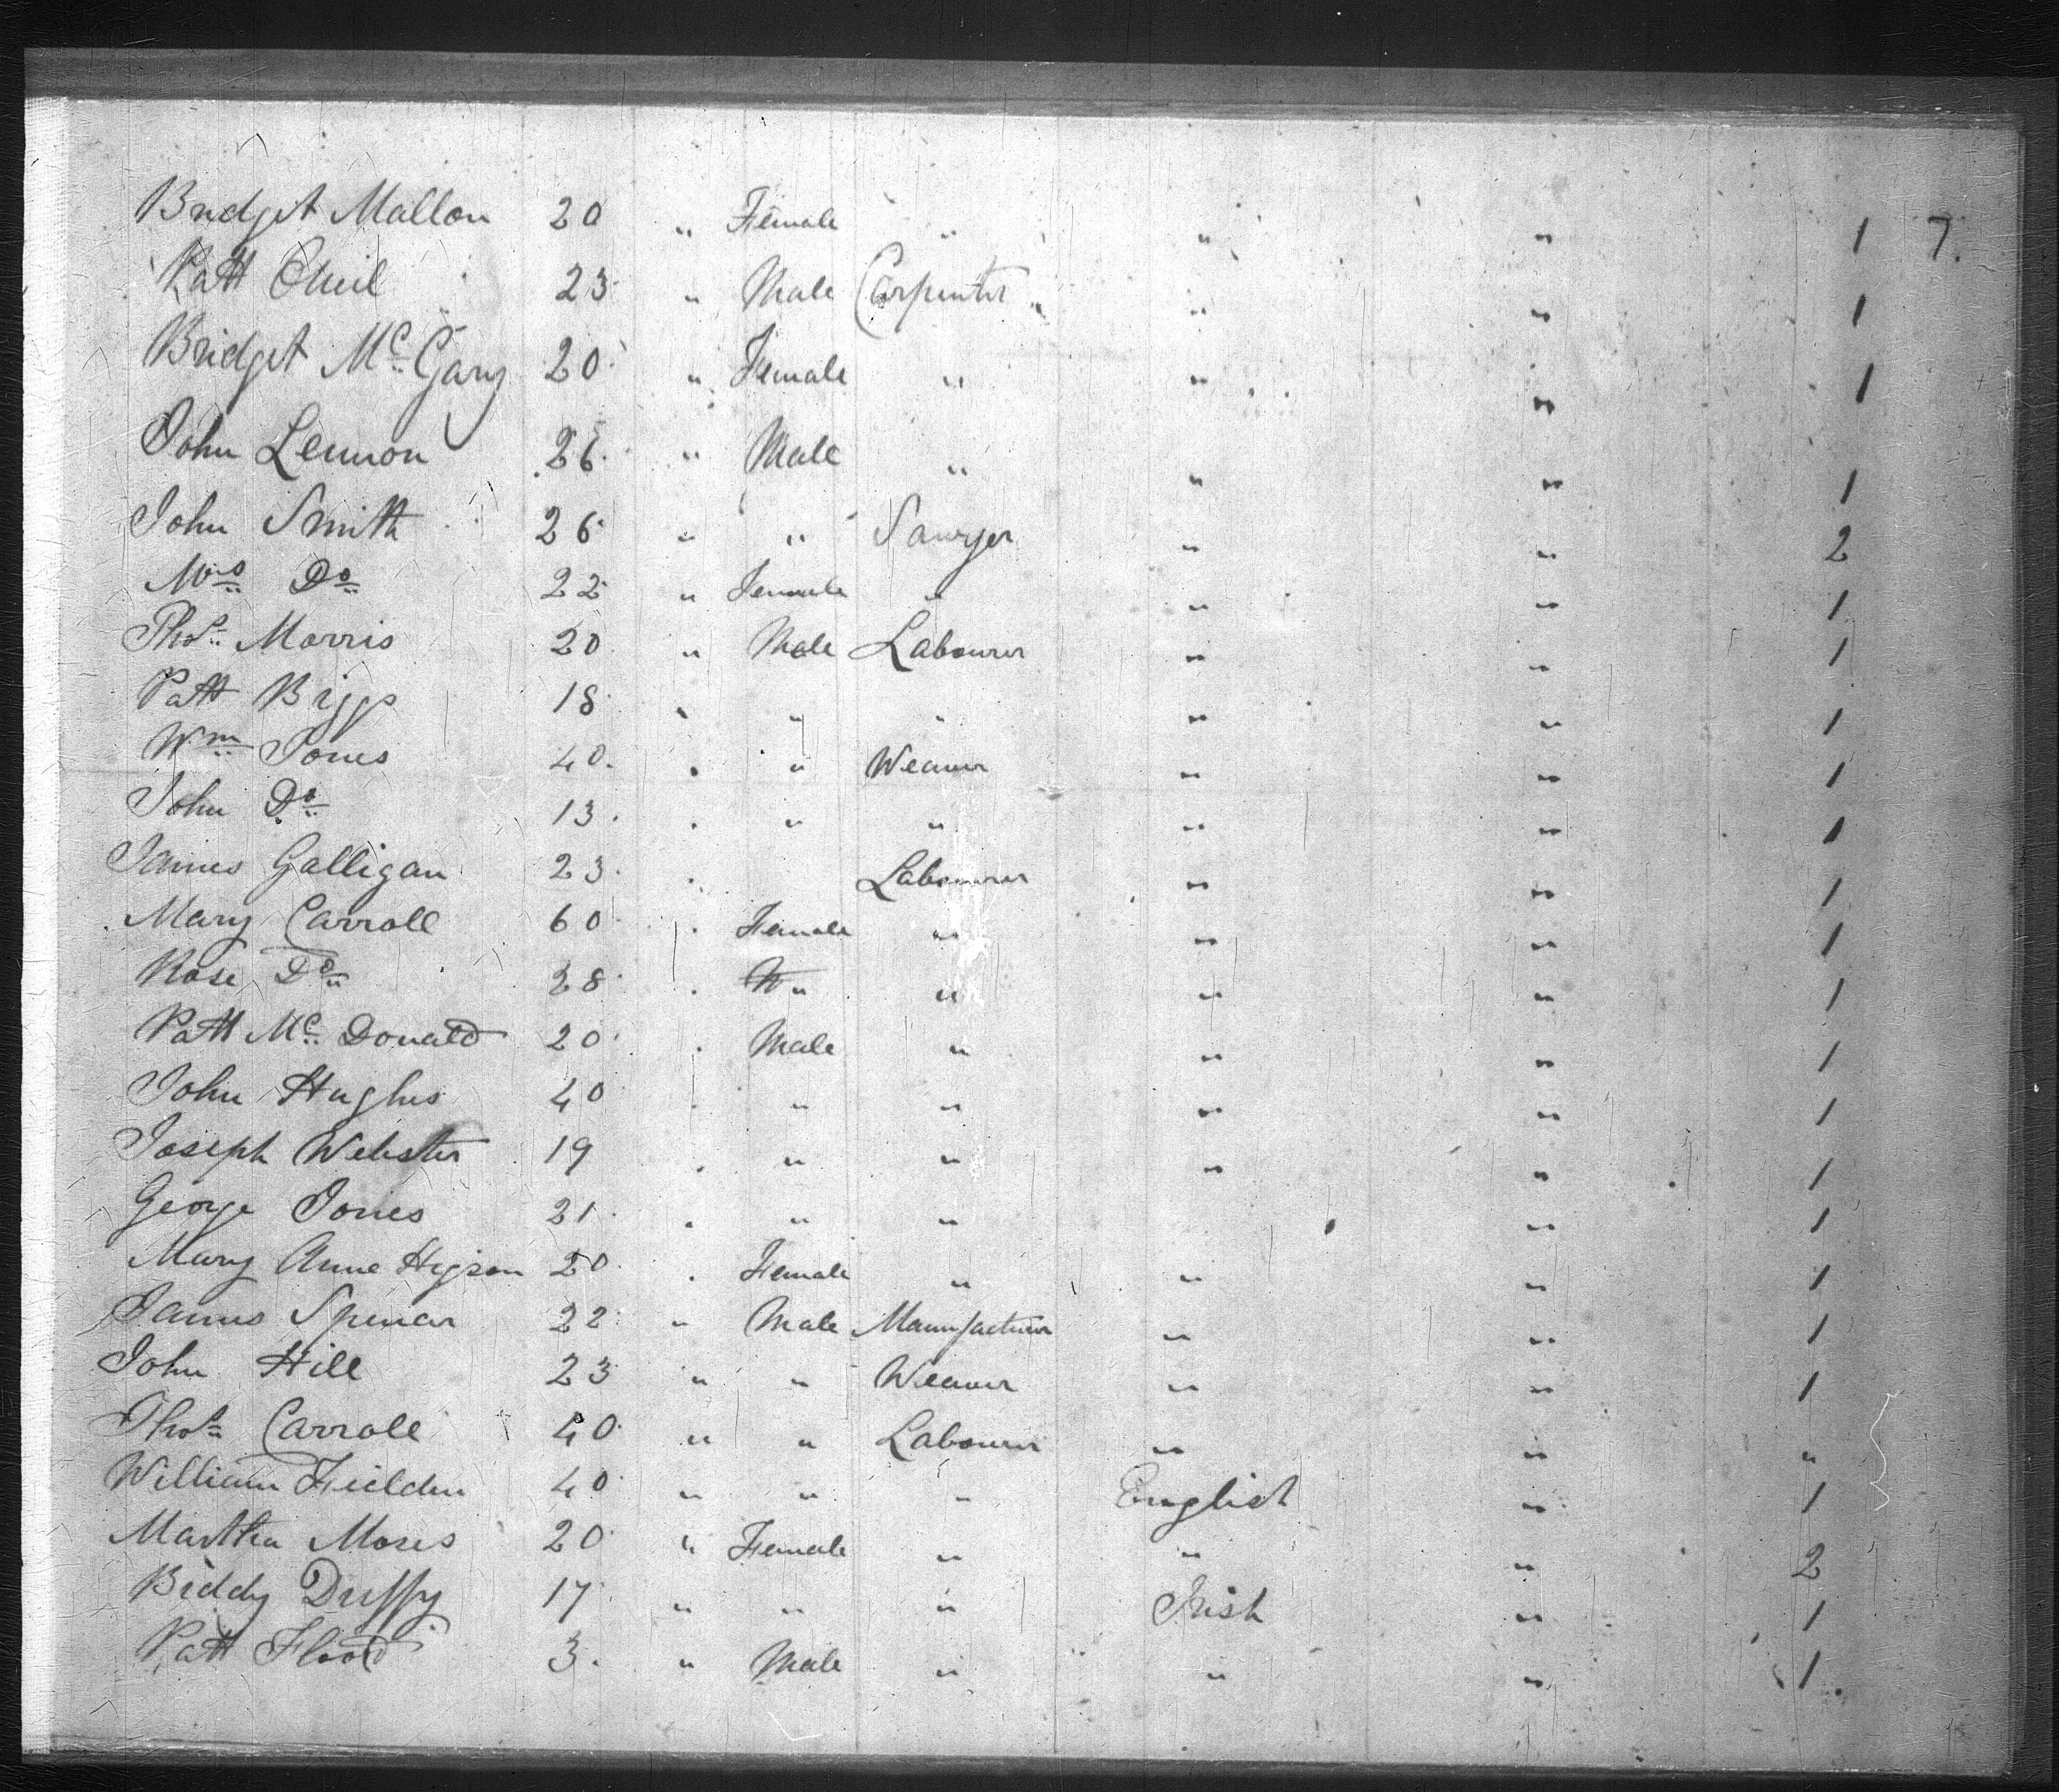 Bridget Mallon 20 " Female " " " 1 7.
Patt 23 " Male Carpenter " " 1
Bridget Mc Gary 20 " Female " " " 1
John Lennon 26 " Male " " " 1
John Smith 26 " " Sawyer " " 2
Mrs Do 22 " Female " " " 1
Thos Morris 20 " Male Labourer " " 1
Patt Biggs 18 " " " " " 1
Wm Jones 40 " " Weaver " " 1
John Do 13 " " " " " 1
James Galligan 23 " Labourer " " 1
Mary Carroll 60 " Female " " " 1
Rose Do 28 " " " " " 1
Patt Mc Donald 20 " Male " " " 1
John Hughes 40 " " " " " 1
Joseph Webster 19 " " " " " 1
George Jones 21 " " " " 1
Mary Anne Higson 20 " Female " " " 1
James Spencer 22 " Male Manufacturer " " 1
John Hill 23 " " Weaver " " 1
Thos Carroll 40 " " Labourer " " "
William Fielden 40 " " " English " 1
Martha Moses 20 " Female " " " 2
Biddy Duffy 17 " " " Irish " 1
Patt Flood 3 " Male " " " 1